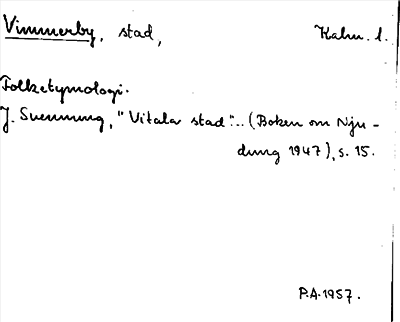 Vimmerby, stad, Kalm. l.
Folketymologi.
J. Svennung, "Vitala stad".. (Boken om Nju-
dung 1947), s. 15.
P.A. 1957.